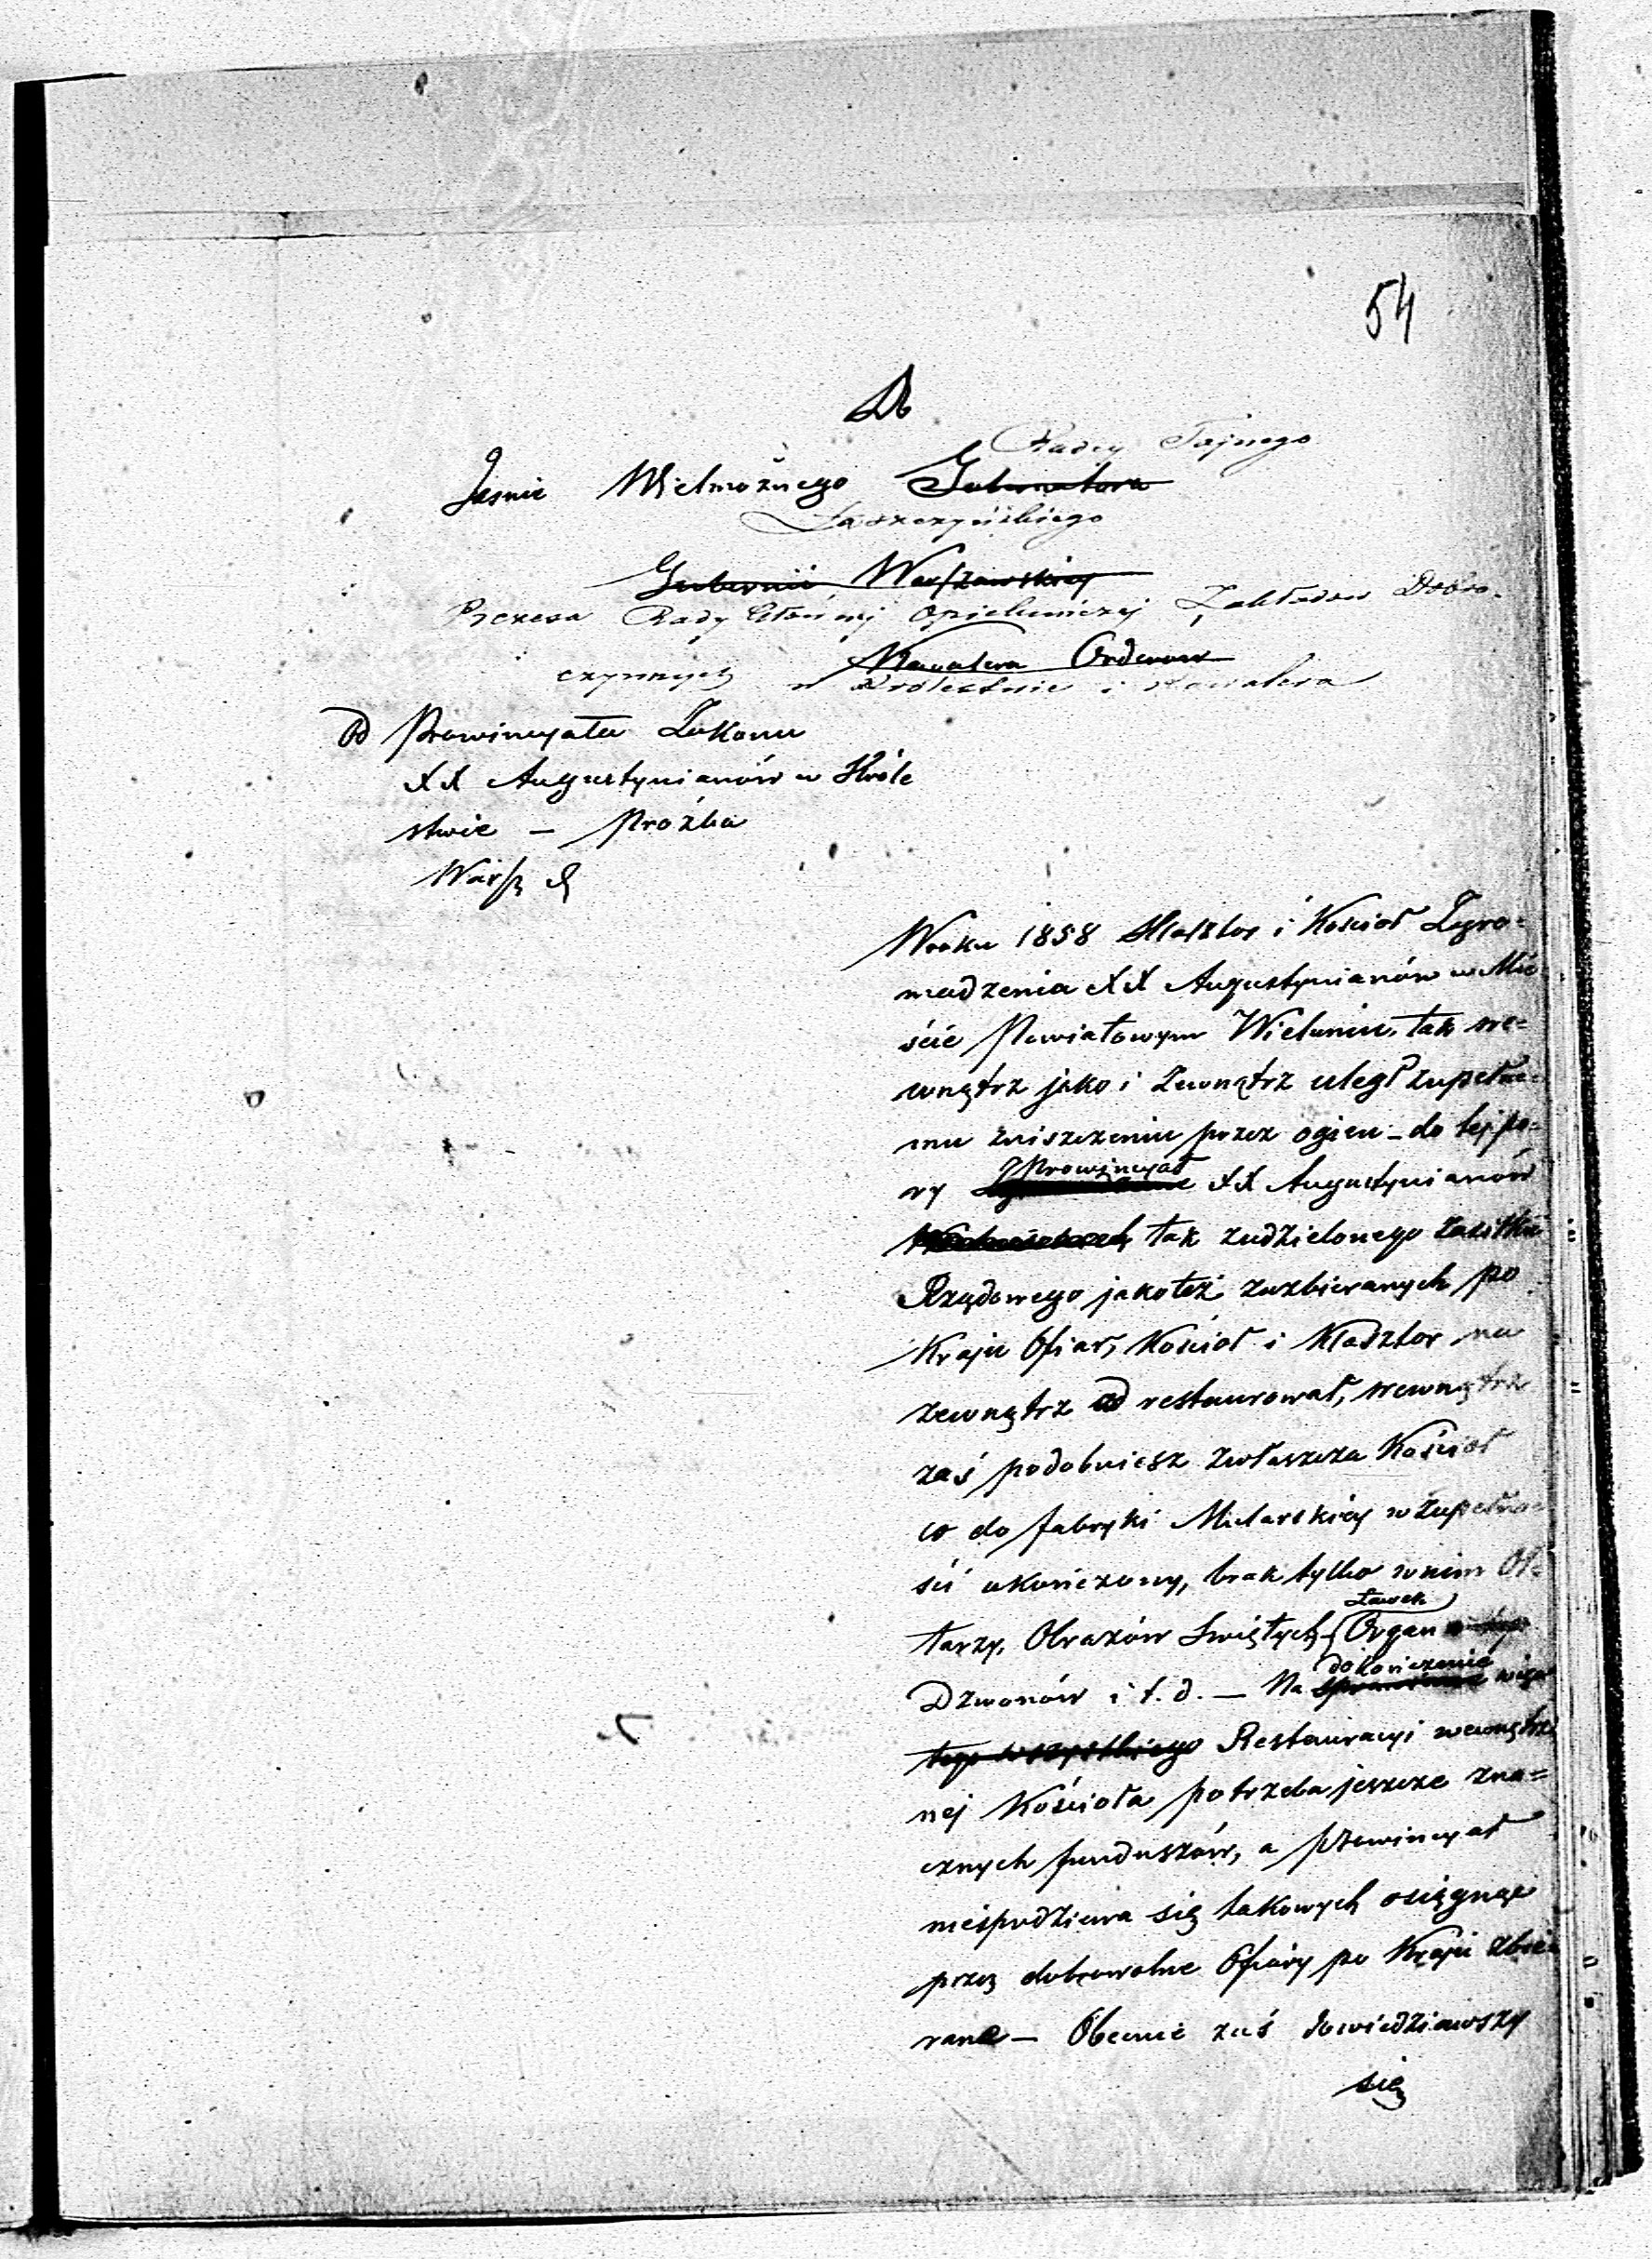 54
Do
Radcy Tajnego
Jaśnie Wielmożnego Gubernatora
Łaszczyńskiego
Gubernii Warszawskiey
Prezesa Rady Głównej Opiekuńczej Zakładów Dobro-
Kawalera Orderow
czynnych w Królestwie i Kawalera
Od Prowincyała Zakonu
XX Augustynianów w Króle
stwie — Proźba
Warsz d
W roku 1858 Klasztor i Kościoł Zgro=
madzenia XX Augustynianów w Mie
ście Powiatowym Wieluniu, tak we=
wnątrz jako i zewnątrz uległ zupełne=
mu zniszczeniu przez ogień – do tej po=
Prowincyał
ry XX Augustynianów
tak z udzielonego zasiłku
Rządowego jakoteż ze zbieranych po
Kraju Ofiar, Kościoł i Klasztor na
zewnątrz od restaurował, wewnątrz
zaś podobniesz zwłaszcza Kościoł
co do fabryki Mularskiey w zupełno=
ści ukończony, brak tylko w nim Oł=
Ławek
tarzy, Obrazów Świętych, Organ
dokończenie
Dzwonów i t. d. — Na więc
tego wszystkiego Restauracyi wewnętrz
nej Kościoła potrzeba jeszcze zna=
cznych funduszów, a Prowincyał
niespodziewa się takowych osiągnąć
przez dobrowolne Ofiary po Kraju zbie=
rane — Obecnie zaś dowiedziawszy
się